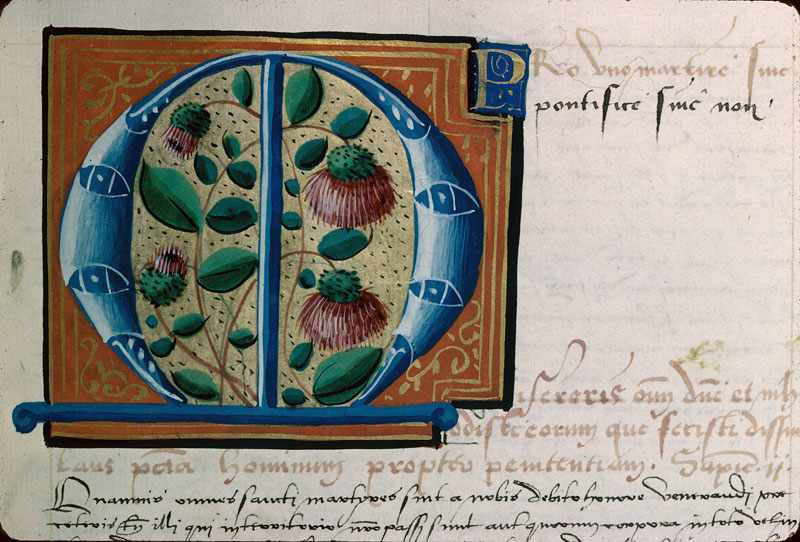 PRo uno martire sive
pontifice sive non
Misereris om̄ dn̄e et nih
odisti eorum que fecisti dissim
lans pccā hominum propter penitentiam. Sapie ii.
Quamvis omnes sancti martyres sint a nobis debito honore venerandi pre
ceteris tn̄ illi qui in territorio nr̄o passi sunt aut quorum corpora in toto vel in